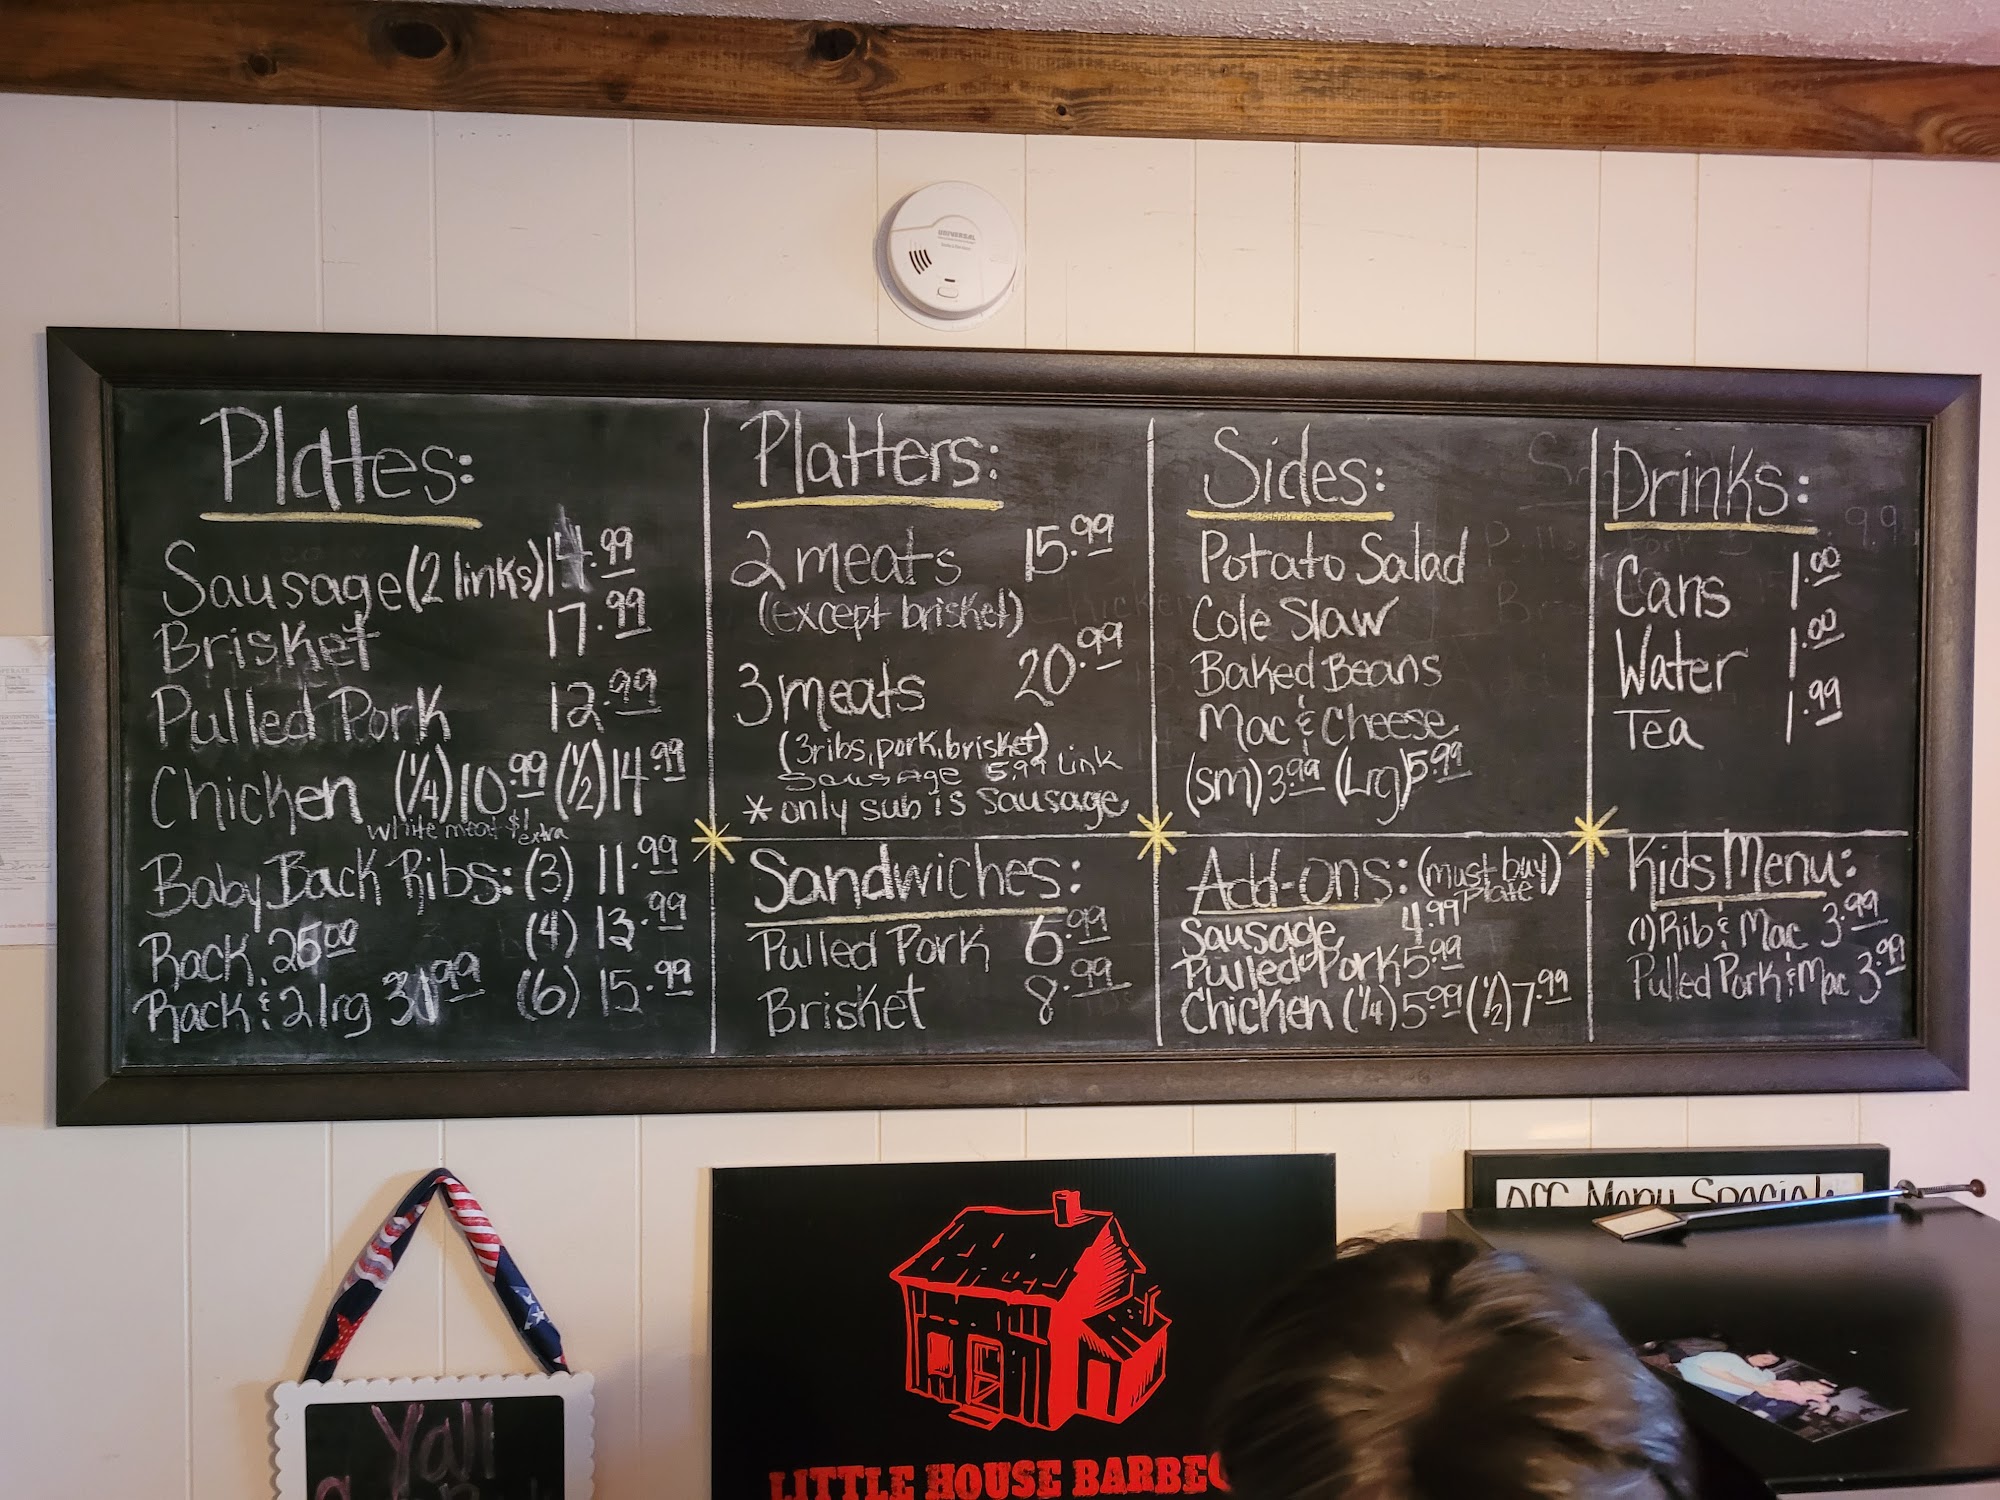 UNIVERSAL
Plates:
Sausage (2 links) 14.99
Brisket 17.99
Pulled Pork 12.99
Chicken (1/4) 10.99 (1/2) 14.99
white meat $1 extra
Baby Back Ribs: (3) 11.99
(4) 13.99
Rack 25.00
Rack & 2 lrg 31.99 (6) 15.99
Platters:
2 meats 15.99
(except brisket)
3 meats 20.99
(3ribs, pork, brisket)
Sausage 5.99 Link
* only sub is sausage
Sandwiches:
Pulled Pork 6.99
Brisket 8.99
Sides:
Potato Salad
Cole Slaw
Baked Beans
Mac & Cheese
(sm) 3.99 (Lrg) 5.99
Add-ons: (must buy Plate)
Sausage 4.99
Pulled Pork 5.99
Chicken (1/4) 5.99 (1/2) 7.99
Drinks:
Cans 1.00
Water 1.00
Tea 1.99
Kids Menu:
(1) Rib & Mac 3.99
Pulled Pork & Mac 3.99
Menu Special
Yall
LITTLE HOUSE BARBEC